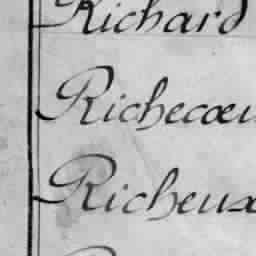 Richard
Richecœu
Richeux